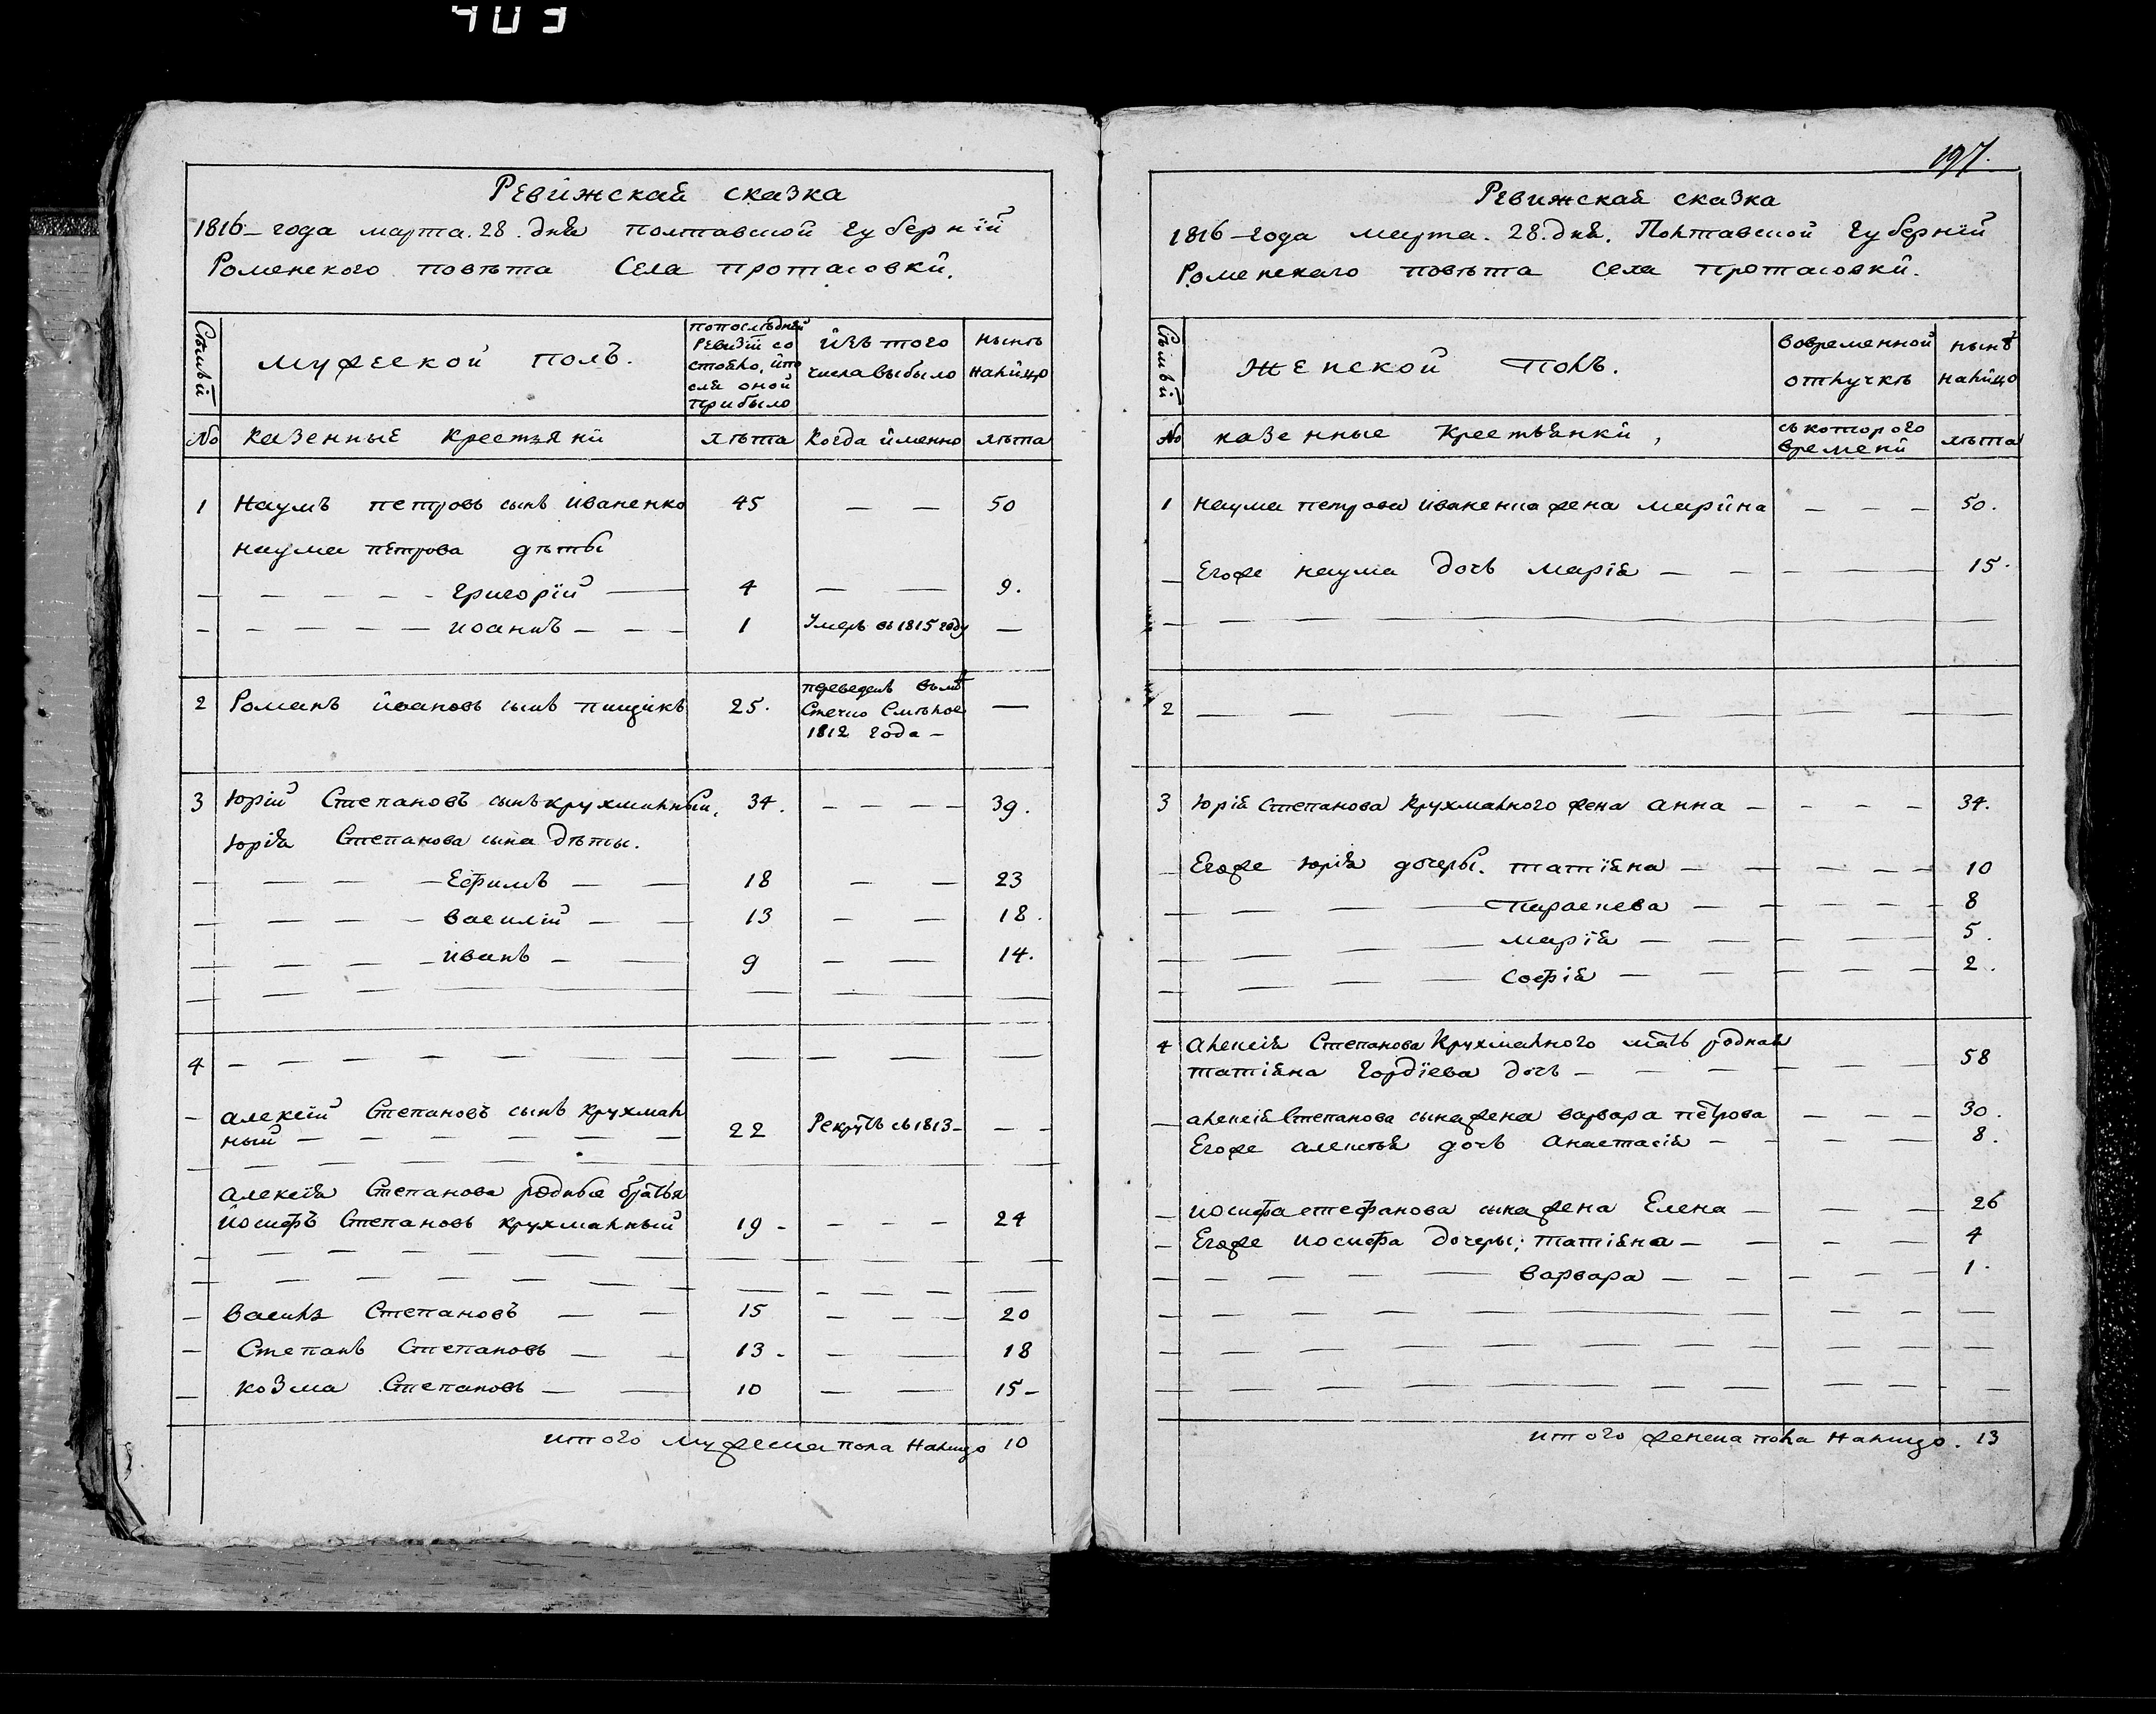 403
Ревижская сказка
1816 – года марта. 28. дня полтавской губернїй
Роменского повѣта Села протасовкй.
Сѣмьй
мужеской полъ.
попослѣдней
Ревизїй со
стояло, йпо
сля оной
прибыло
йзъ того
числа выбыло
нынѣ
налйцо
№
казенные крестьянй
лѣта
когда йменно
лѣта
1 Наумъ петровъ сынъ иваненко 45 — — 50
наума петрова дѣты
— — — — — Григорїй — 4 — — 9.
— — — — — иоаннъ — — — 1 Умеръ въ 1815 году —
2 Романъ йвановъ сынъ пищикъ 25.
1812 года – —
3 Юрїй Степановъ сынъ крухмальный. 34. — — — — 39.
Юрїя Степанова сына дѣты.
— — — — — Ефимъ — — 18 — — 23
— — — — — василїй — — 13 — — 18.
— — — — — иванъ — — 9 — — 14.
4 — — — — — —
— алексїй Степановъ сынъ крухмаль
ный — — — — — — 22 Рекрутъ въ 1813 – — —
алексїя Степанова родные братья
йосифъ Степановъ крухмальный 19 – — — — 24
— василь Степановъ — — 15 — — — 20
— Степанъ Степановъ — — 13 – — — 18
— козма Степановъ — — 10 — — 15 –
итого мужеска пола налицо 10
197.
Ревижская сказка
1816 – года марта. 28. дня. Полтавской губернїй
Роменскаго повѣта села протасовкй.
Сѣмьй
женской полъ.
вовременной
отлучкѣ
нынѣ
налйцо
№
казенные крестьянкй,
съкоторого
временй
лѣта
1 наума петрова иваненка жена марйна — — — 50.
— Егоже наума дочь марїя — — — — — 15.
2 — — — — — — — — — —
3 Юрїя Степанова крухмального жена анна — — — — 34.
— Егоже юрїя дочеры. татїяна — — — — — 10
— — — — параскева — — — — — 8
— — — — марїя — — — — 5.
— — — — софїя — — — — — 2.
4 алексїя Степанова крухмального мать родная
татїяна гордїева дочь — — — — — 58
— алексїя Степанова сына жена варвара петрова — — — 30.
Егоже алексѣя дочь анастасїя — — — — 8.
— йосифа стефанова сына жена Елена — — — 26
— Егоже иосифа дочеры; татїяна — — — — 4
— — — — — — варвара — — — — — 1.
итого женска пола налицо. 13